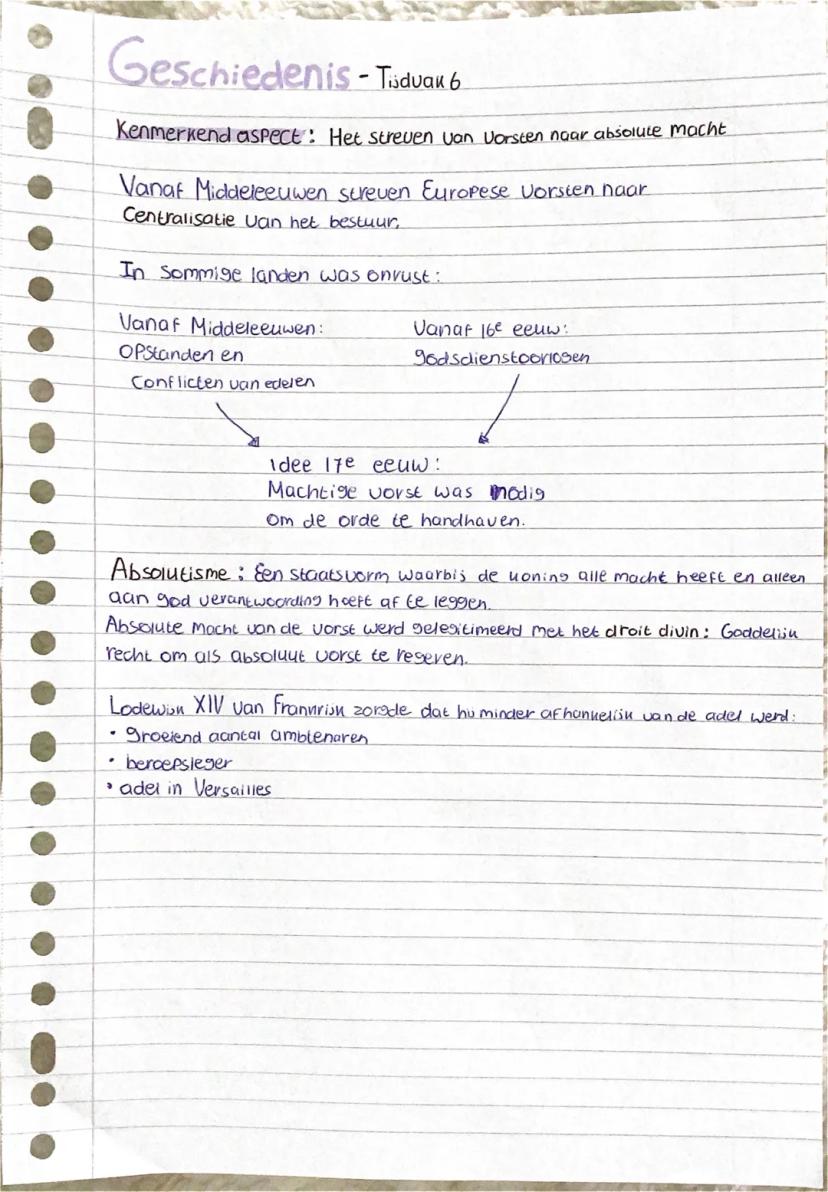 Geschiedenis - Tijdvak 6
Kenmerkend aspect: Het streven van vorsten naar absolute macht
Vanaf Middeleeuwen streven Europese vorsten naar
Centralisatie van het bestuur.
In sommige landen was onrust:
Vanaf Middeleeuwen:
Opstanden en
Conflicten van edelen
Vanaf 16e eeuw:
godsdienstoorlogen
idee 17e eeuw:
Machtige vorst was nodig
om de orde te handhaven.
Absolutisme: Een staatsvorm waarbij de koning alle macht heeft en alleen
aan god verantwoording hoeft af te leggen.
Absolute Macht van de vorst werd gelegitimeerd met het droit divin: Goddelijk
recht om als absoluut vorst te regeren.
Lodewijk XIV van Frankrijk zorgde dat hij minder afhankelijk van de adel werd:
• groeiend aantal ambtenaren
• beroepsleger
• adel in Versailles